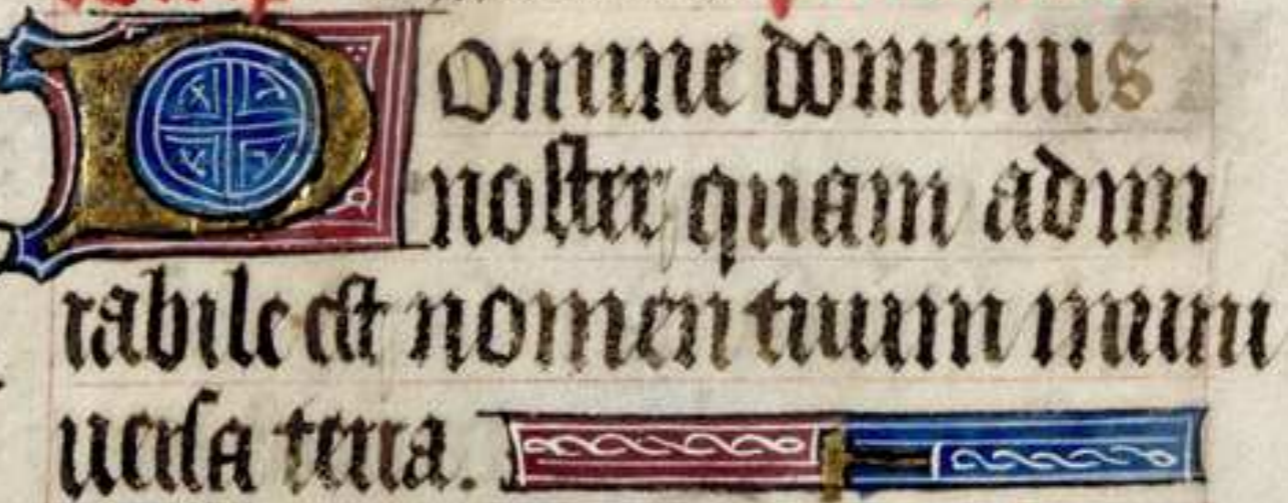 Domine dominus
noster quam admi
rabile est nomen tuum in uni
uersa terra.